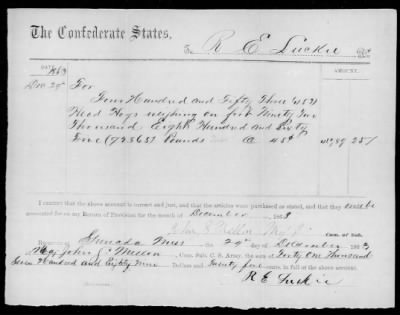 The Confederate States,
To R E Luckie
DATE. AMOUNT.
1863
Dec 29 For
Four Hundred and Fifty Three (453)
Head Hogs weighing on foot Ninety Two
Thousand Eight Hundred and Sixty
Five (92865) Pounds @ 45¢ 41,789 25
I CERTIFY that the above account is correct and just, and that the articles were purchased as stated, and that they will be
accounted for on my Return of Provision for the month of December 1863
Com. of Sub.
RECEIVED at Grenada Miss the 29th of December 1863, of
Maj John J Com. Sub. C. S. Army, the sum of Forty One Thousand
Seven Hundred and Eighty Nine Dollars and Twenty five cents, in full of the above account.
R E Luckie